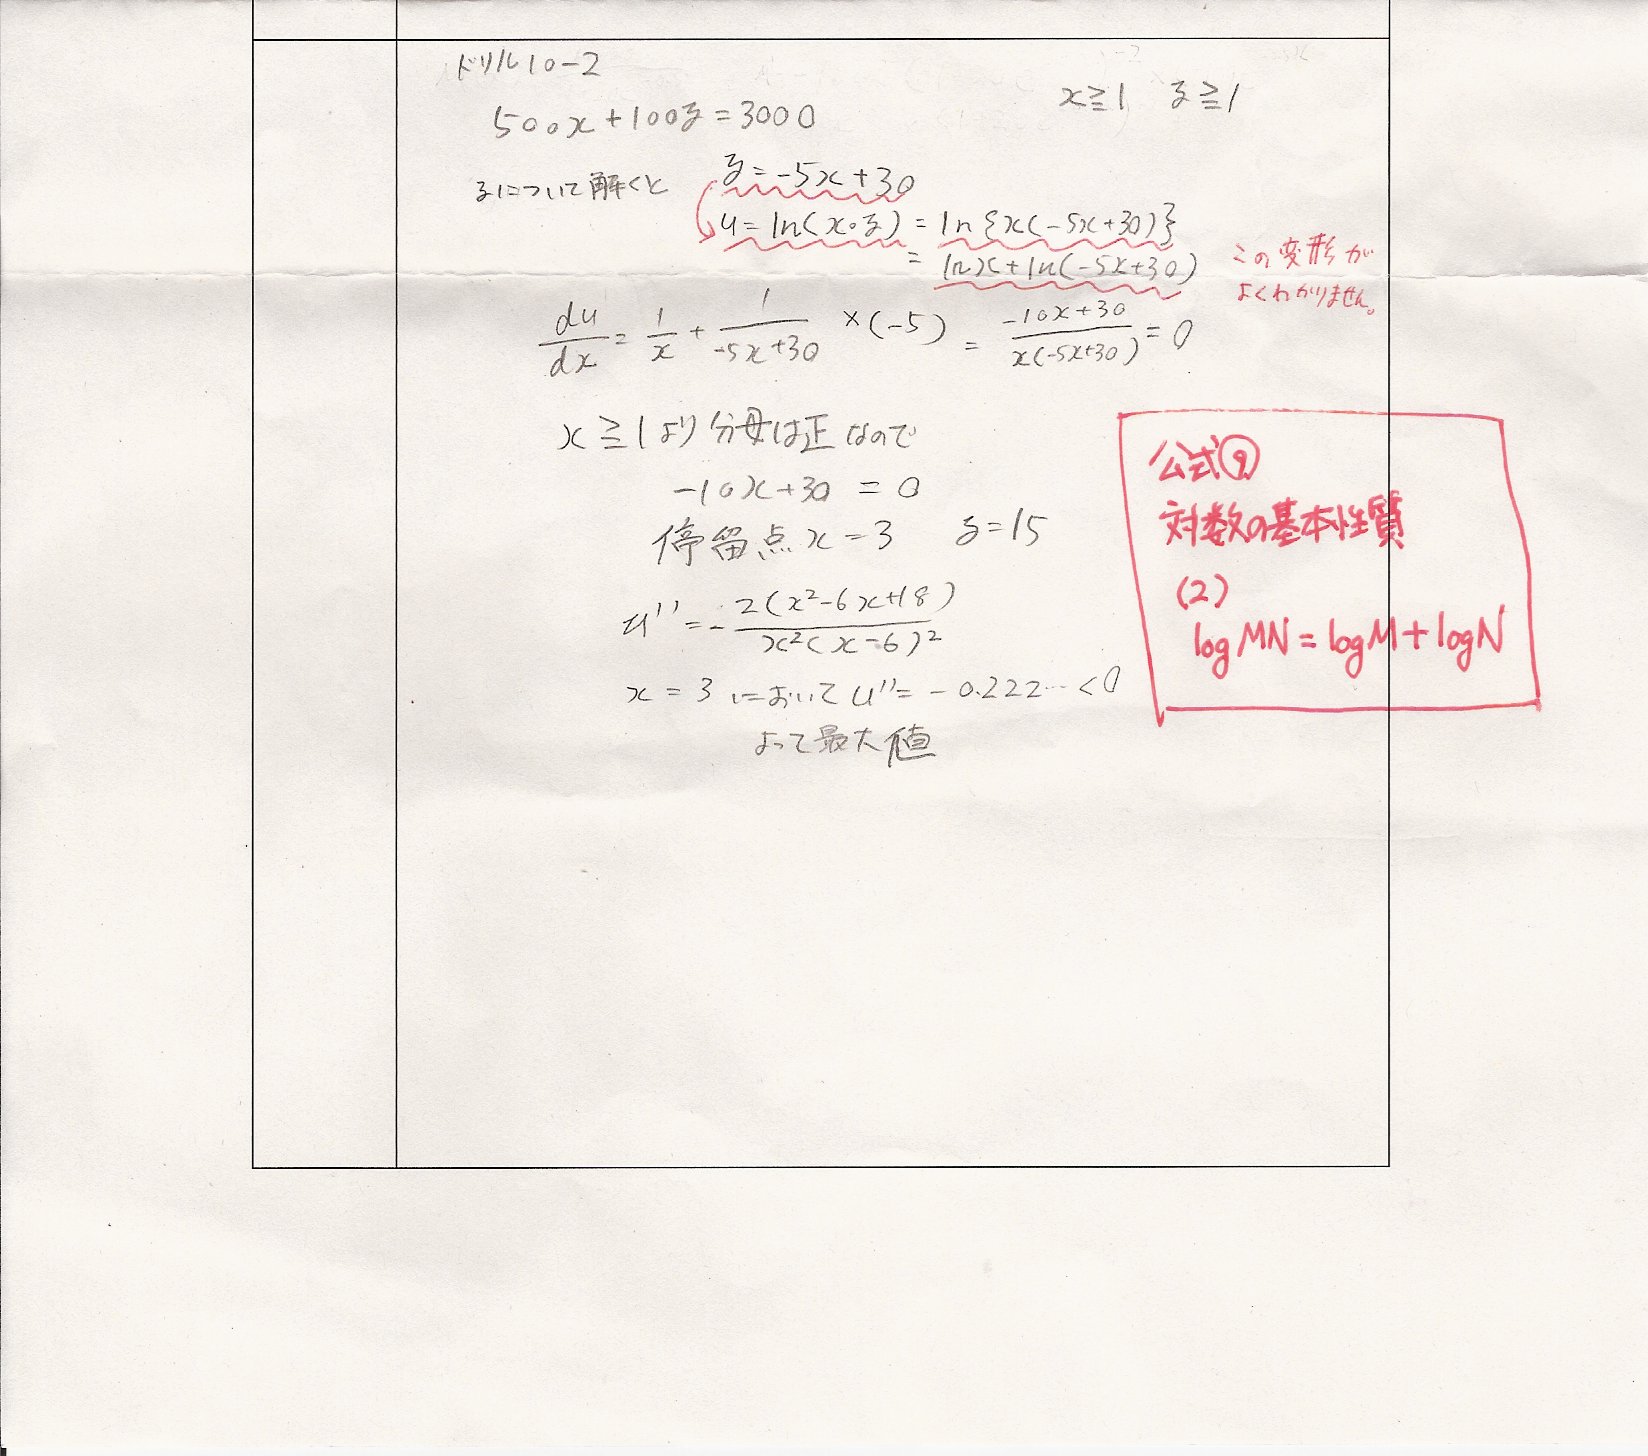 ドリル10-2
500x+100z=3000
x≧1 z≧1
zについて解くと z=-5x+30
u=ln(x・z)=ln{x(-5x+30)}
=lnx+ln(-5x+30)
この変形が
よくわかりません。
du/dx=1/x+1/(-5x+30)×(-5)=(-10x+30)/(x(-5x+30))=0
x≧1より分母は正なので
-10x+30=0
停留点x=3 z=15
u''=-2(x²-6x+18)/(x²(x-6)²)
x=3においてu''=-0.222…<0
よって最大値
公式⑨
対数の基本性質
(2)
logMN=logM+logN